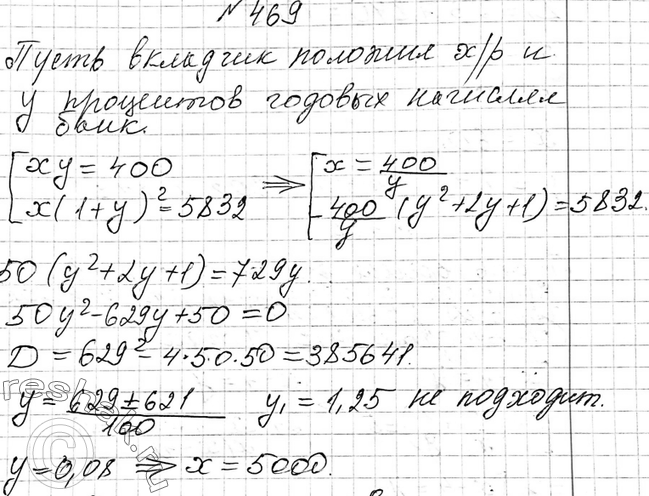 №469
Пусть вкладчик положил х/р и
у процентов годовых начислял
банк.
[ xy = 400 ⟹ [ x = 400/y
[ x(1+y)² = 5832 [ 400/y (y²+2y+1) = 5832.
50 (y²+2y+1) = 729y.
50y² - 629y + 50 = 0
D = 629² - 4·50·50 = 385641.
y = (629 ± 621)/100 y₁ = 1,25 не подходит.
y = 0,08 ⟹ x = 5000.
reshak.ru